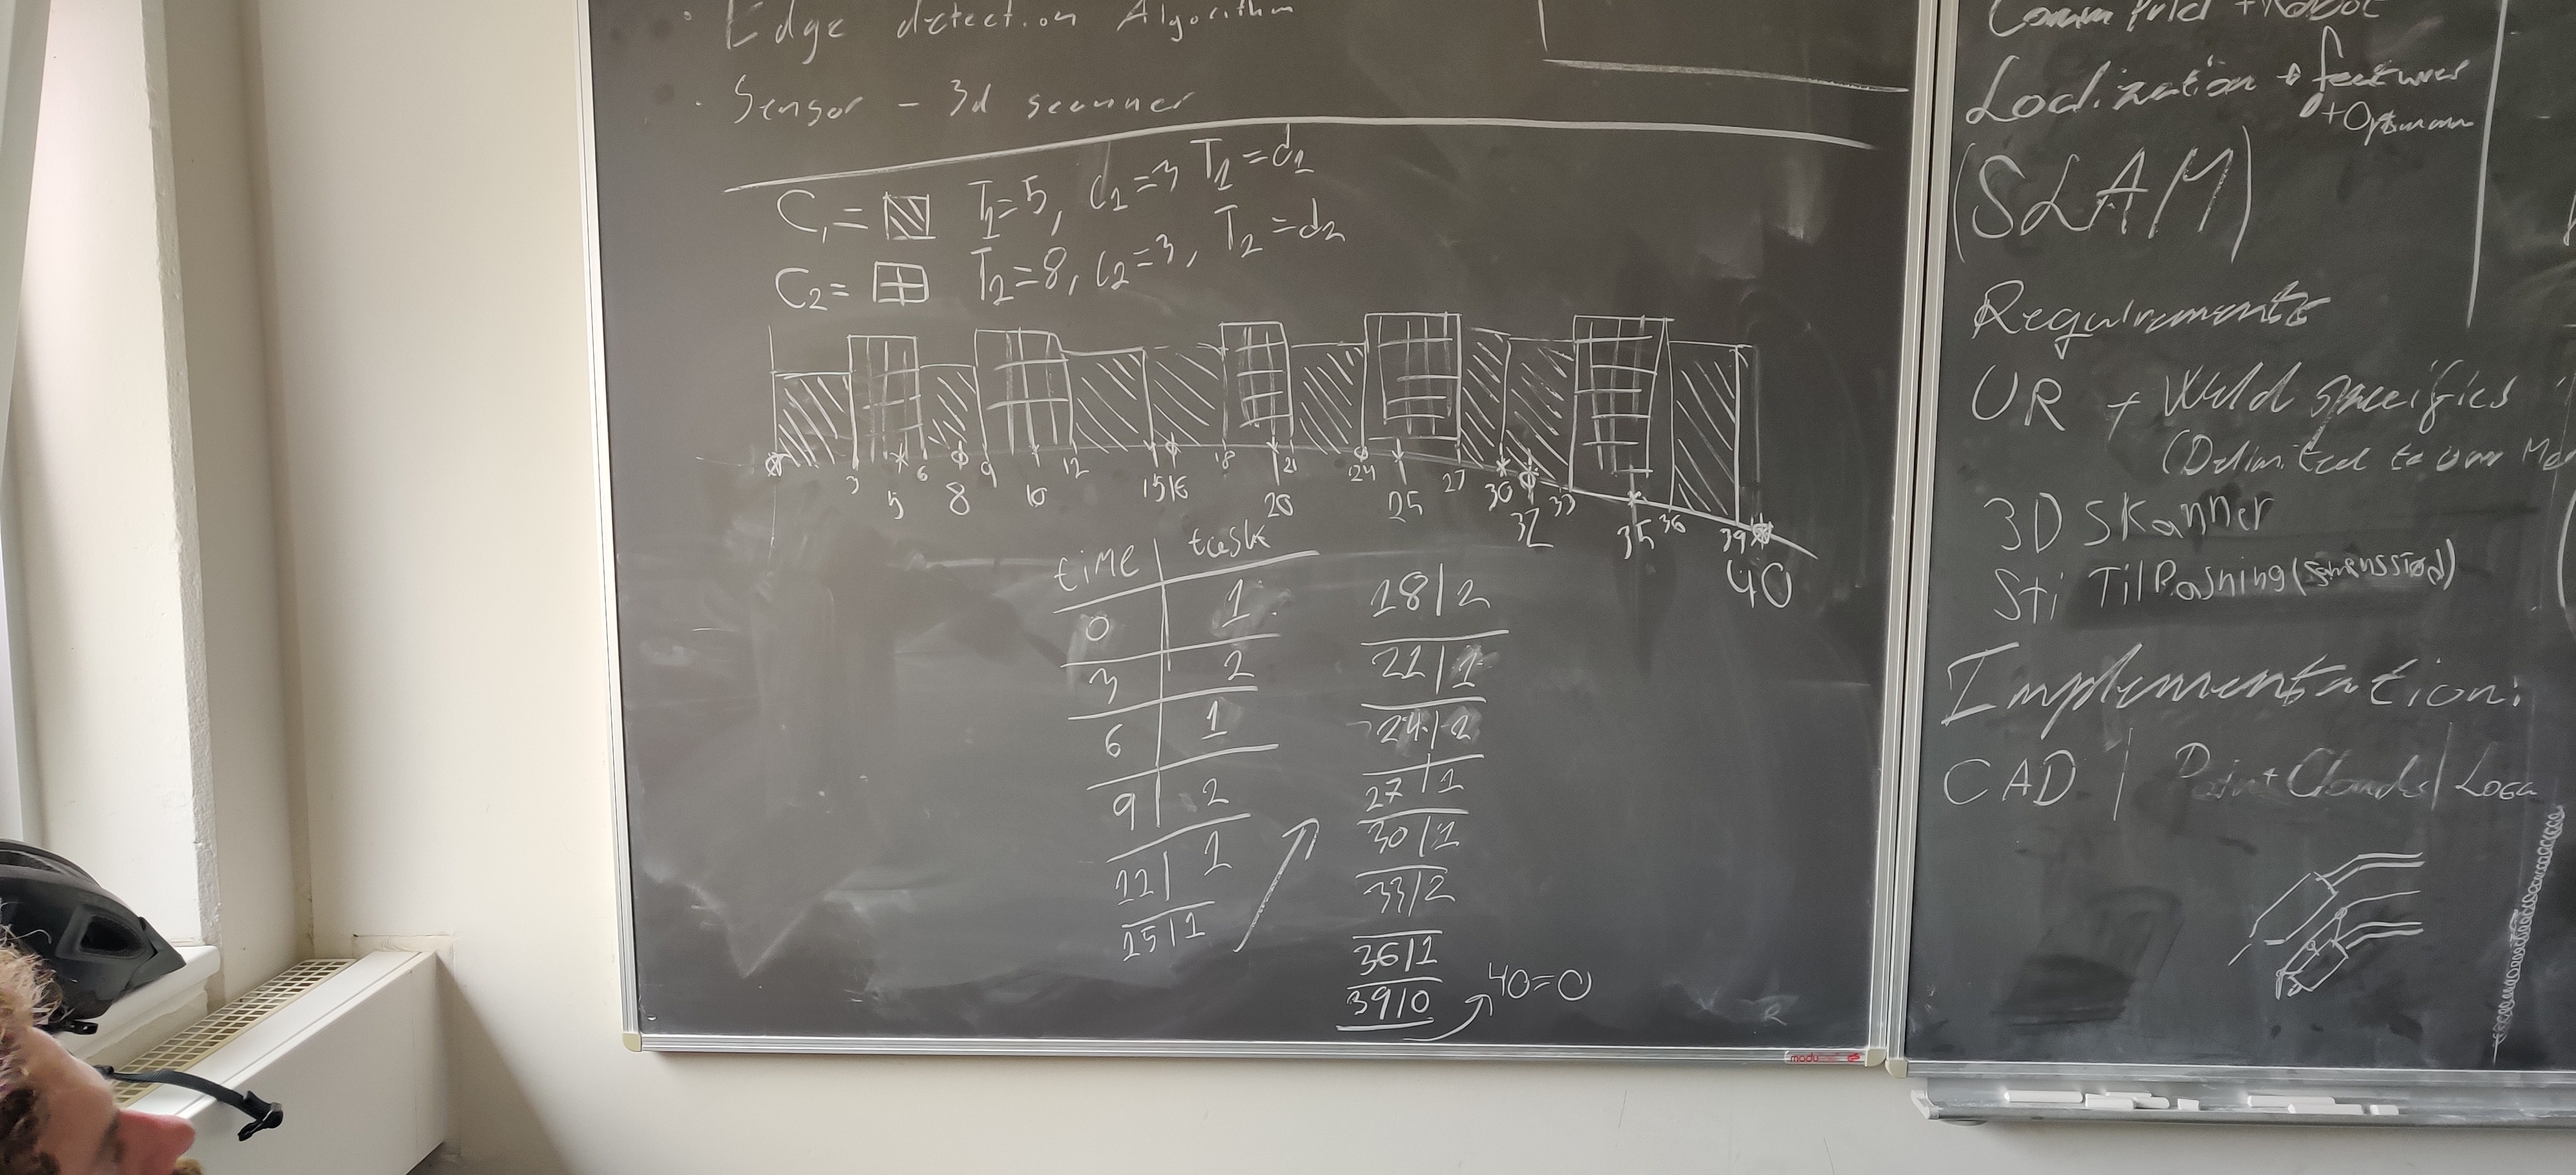 · Edge detection Algorithm
· Sensor - 3d scanner
C₁ = T₁=5, C₁=3 T₁=d₁
C₂ = T₂=8, C₂=3, T₂=d₂
3 5 6 8 9 10 12 15 16 18 20 21 24 25 27 30 32 33 35 36 39 40
time | task
0 | 1
3 | 2
6 | 1
9 | 2
12 | 1
15 | 1
18 | 2
21 | 1
24 | 2
27 | 1
30 | 1
33 | 2
36 | 1
39 | 0
40=0
modu
Localization + features
(SLAM)
Requirements
UR + Weld specifics
(Delimited to
3D Skanner
Sti TilPasning
Implementation:
CAD | Point Clouds |